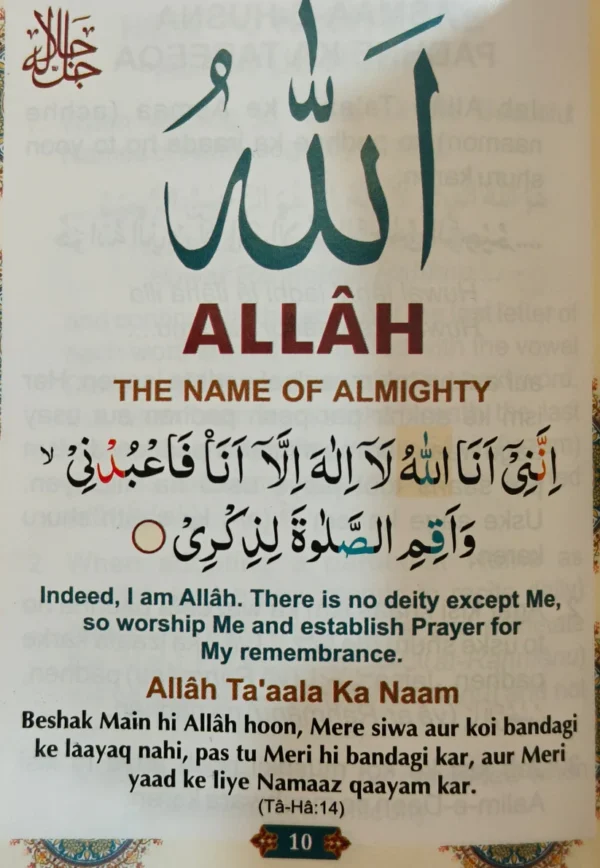 جل جلاله
الله
ALLÂH
THE NAME OF ALMIGHTY
اِنَّنِيْۤ اَنَا اللّٰهُ لَاۤ اِلٰهَ اِلَّاۤ اَنَا۠ فَاعْبُدْنِيْ ۙ
وَاَقِمِ الصَّلٰوةَ لِذِكْرِيْ ○
Indeed, I am Allâh. There is no deity except Me,
so worship Me and establish Prayer for
My remembrance.
Allâh Ta'aala Ka Naam
Beshak Main hi Allâh hoon, Mere siwa aur koi bandagi
ke laayaq nahi, pas tu Meri hi bandagi kar, aur Meri
yaad ke liye Namaaz qaayam kar.
(Tâ-Hâ:14)
10